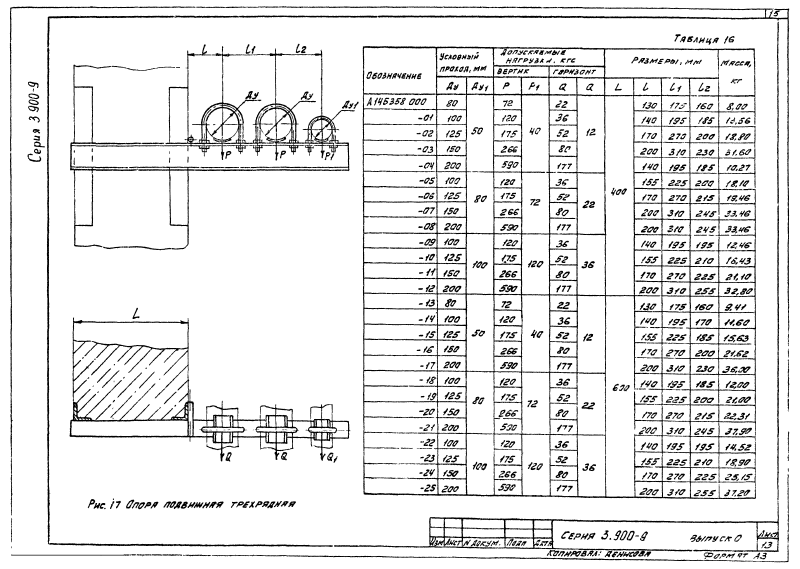 15
Серия 3.900-9
Таблица 16
Обозначение | Условный проход, мм | Допускаемые нагрузки, кгс | Размеры, мм | Масса, кг
вертик | горизонт
Ду | Ду1 | P | P1 | Q | Q | L | l | l1 | l2
А14Б358 000 | 80 | 50 | 72 | 40 | 22 | 12 | 400 | 130 | 175 | 160 | 8,00
-01 | 100 | 120 | 36 | 140 | 195 | 185
-02 | 125 | 175 | 52 | 170 | 270 | 200 | 18,80
-03 | 150 | 266 | 80 | 200 | 310 | 230 | 31,60
-04 | 200 | 590 | 177 | 140 | 195 | 185 | 10,27
-05 | 100 | 80 | 120 | 72 | 36 | 22 | 155 | 225 | 200 | 18,10
-06 | 125 | 175 | 52 | 170 | 270 | 215 | 19,46
-07 | 150 | 266 | 80 | 200 | 310 | 245 | 33,46
-08 | 200 | 590 | 177 | 200 | 310 | 245 | 33,46
-09 | 100 | 100 | 120 | 120 | 36 | 36 | 140 | 195 | 195 | 12,46
-10 | 125 | 175 | 52 | 155 | 225 | 210 | 16,43
-11 | 150 | 266 | 80 | 170 | 270 | 225 | 21,10
-12 | 200 | 590 | 177 | 200 | 310 | 255 | 32,80
-13 | 80 | 50 | 72 | 40 | 22 | 12 | 600 | 130 | 175 | 160 | 9,41
-14 | 100 | 120 | 36 | 140 | 195 | 170 | 11,60
-15 | 125 | 175 | 52 | 155 | 225 | 185 | 15,63
-16 | 150 | 266 | 80 | 170 | 270 | 200 | 21,62
-17 | 200 | 590 | 177 | 200 | 310 | 230 | 36,00
-18 | 100 | 80 | 120 | 72 | 36 | 22 | 140 | 195 | 185 | 12,00
-19 | 125 | 175 | 52 | 155 | 225 | 200 | 21,00
-20 | 150 | 266 | 80 | 170 | 270 | 215 | 22,31
-21 | 200 | 590 | 177 | 200 | 310 | 245 | 37,90
-22 | 100 | 100 | 120 | 120 | 36 | 36 | 140 | 195 | 195 | 14,52
-23 | 125 | 175 | 52 | 155 | 225 | 210 | 18,90
-24 | 150 | 266 | 80 | 170 | 270 | 225 | 25,15
-25 | 200 | 590 | 177 | 200 | 310 | 255 | 37,20
l l1 l2
Ду Ду Ду1
P P P1
L
Q Q Q1
Рис. 17 Опора подвижная трехрядная
Изм Лист N докум. Подп Дата
Серия 3.900-9 Выпуск 0 Лист 13
Копировал: Денисова Формат А3